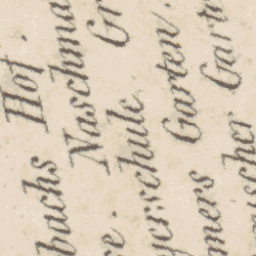 bachs Hof.
Naschma
se. Gr
yerschule
Garten.
mers Gart
ischer